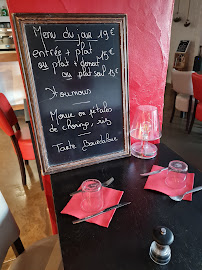 Menu du jour 19€
entrée + plat
ou plat + dessert 15€
ou plat seul 13€
Houmous
Morue et pétales
de chorizo, riz
Tarte Bourdaloue